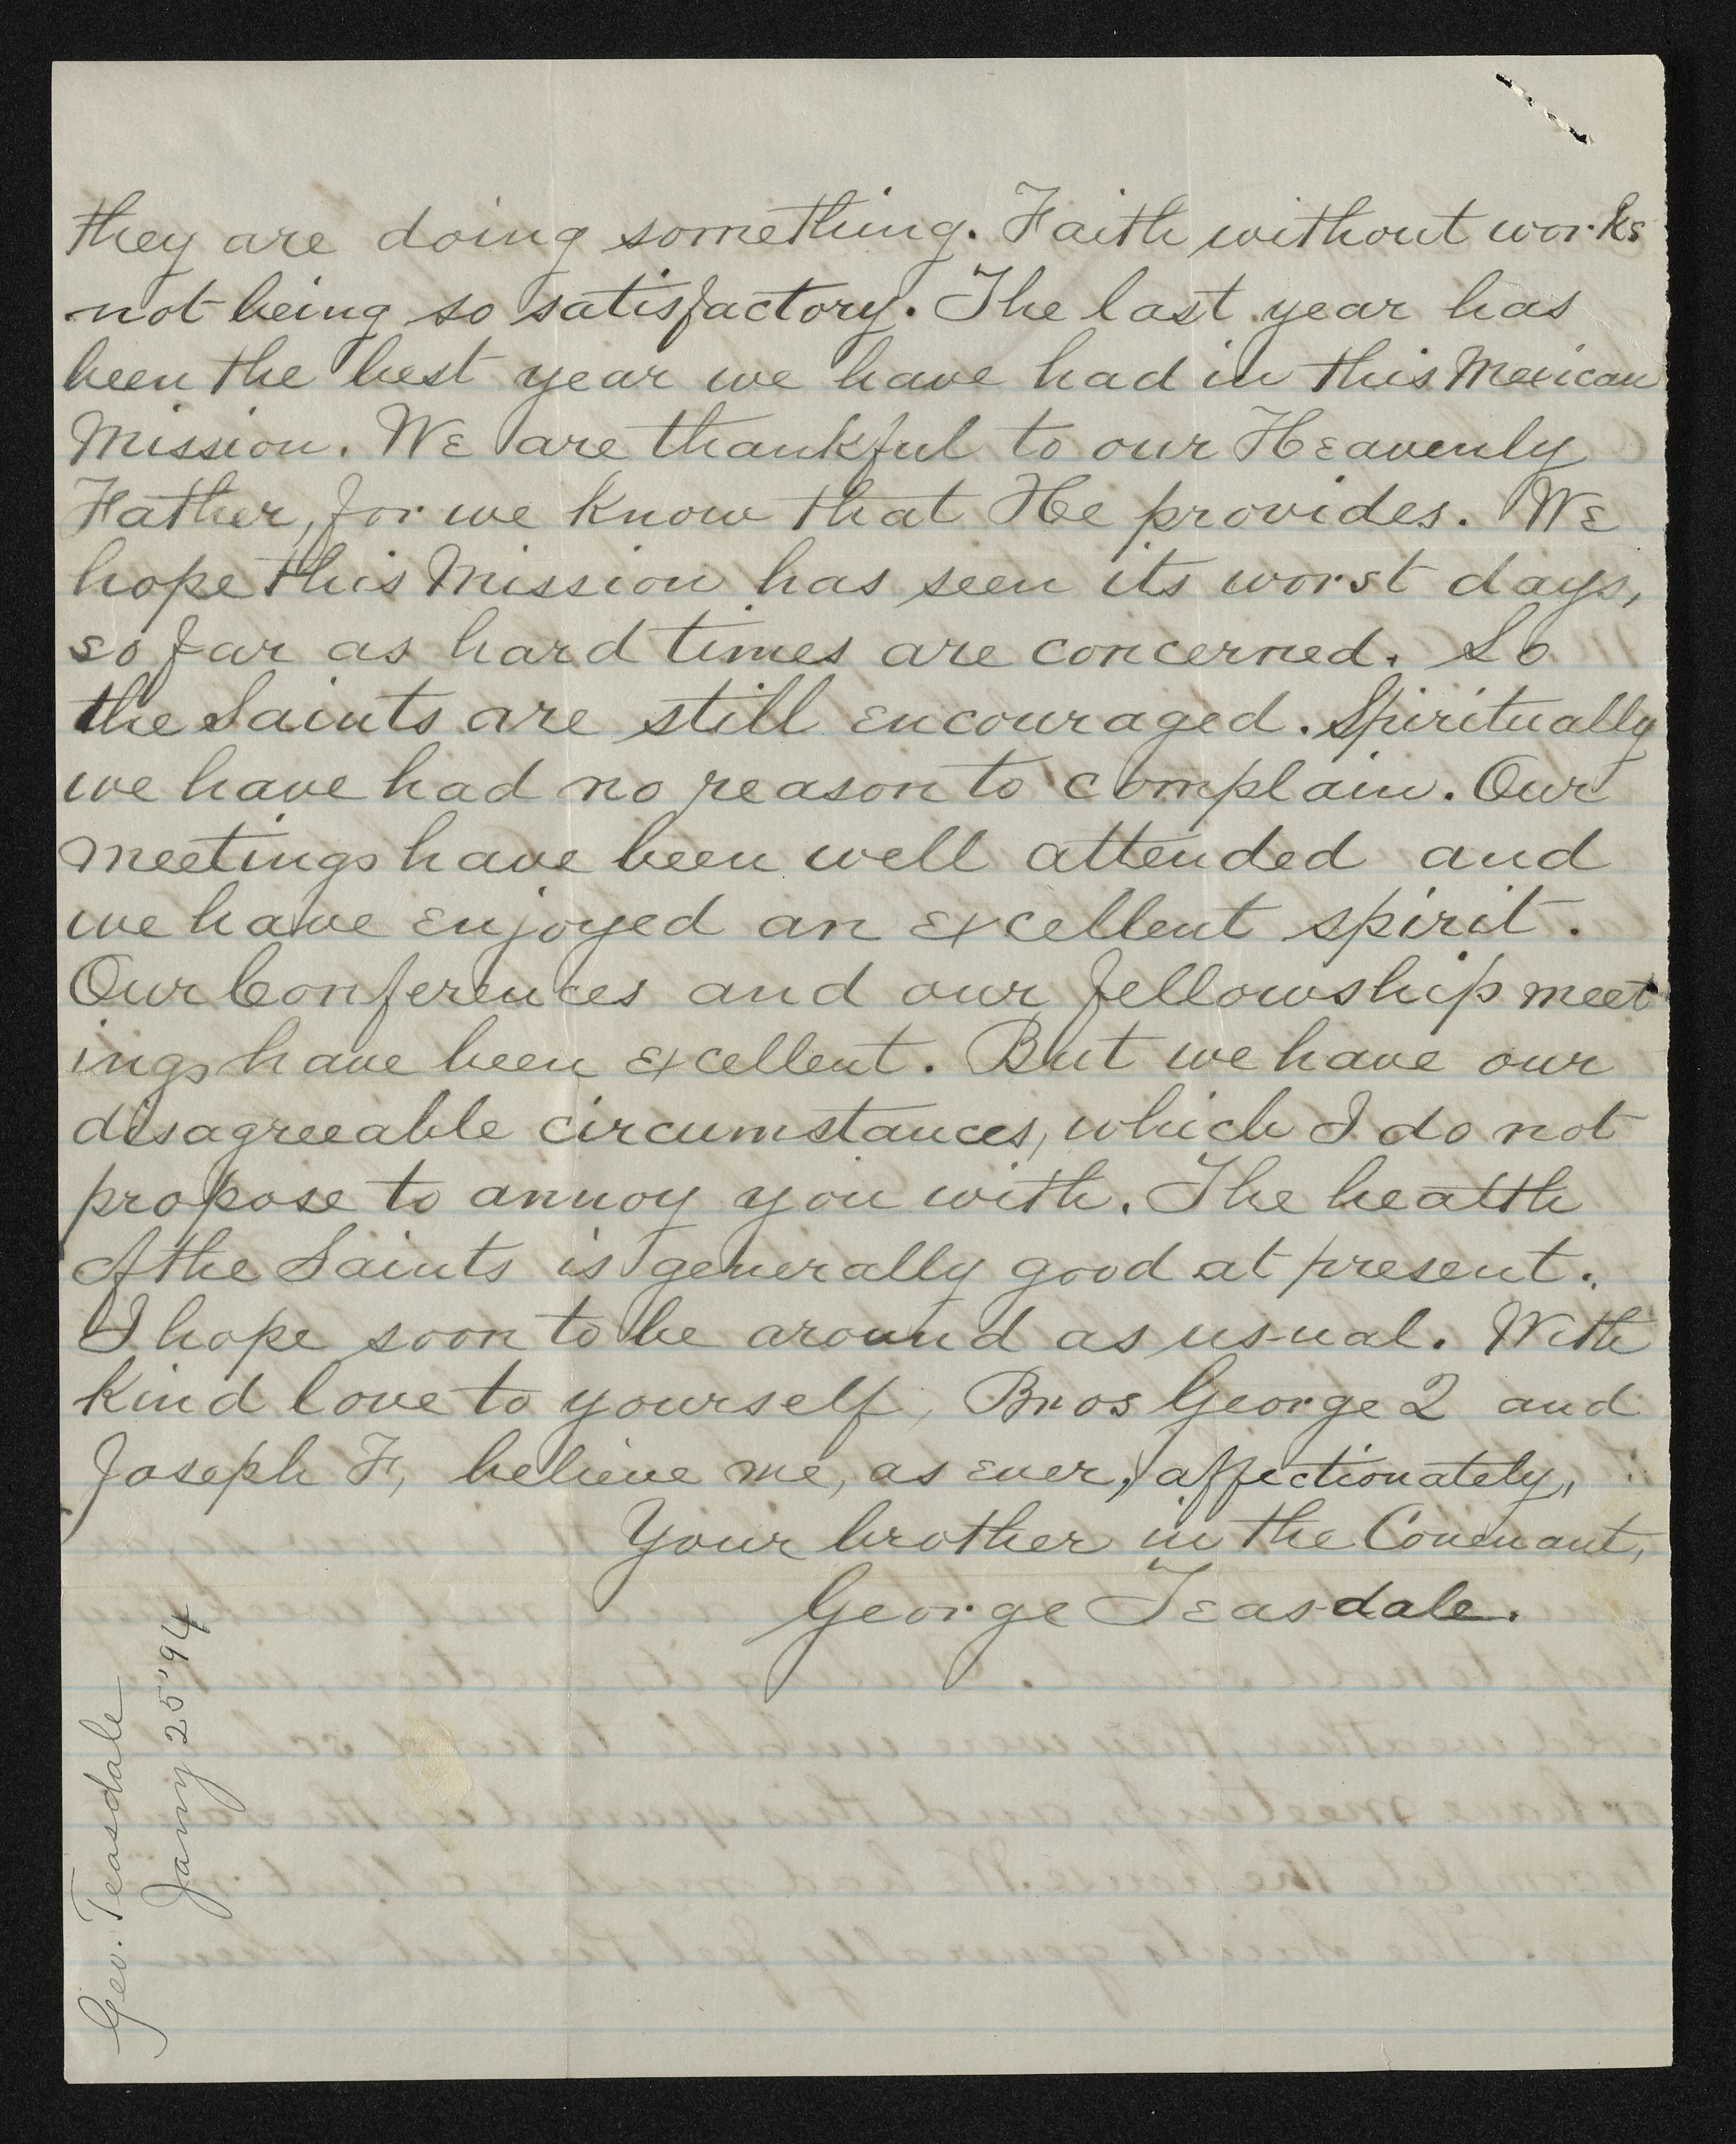 they are doing something. Faith without works
not being so satisfactory. The last year has
been the best year we have had in this Mexican
Mission. We are thankful to our Heavenly
Father, for we know that He provides. We
hope this Mission has seen its worst days,
so far as hard times are concerned. So
the Saints are still encouraged. Spiritually
we have had no reason to complain. Our
meetings have been well attended and
we have enjoyed an excellent spirit.
Our Conferences and our fellowship meet
ings have been excellent. But we have our
disagreeable circumstances, which I do not
propose to annoy you with. The health
of the Saints is generally good at present.
I hope soon to be around as usual. With
kind love to yourself, Bros George Q and
Joseph F, believe me, as ever, affectionately,
Your brother in the Covenant,
George Teasdale.
Geo. Teasdale
Jany 25 '94